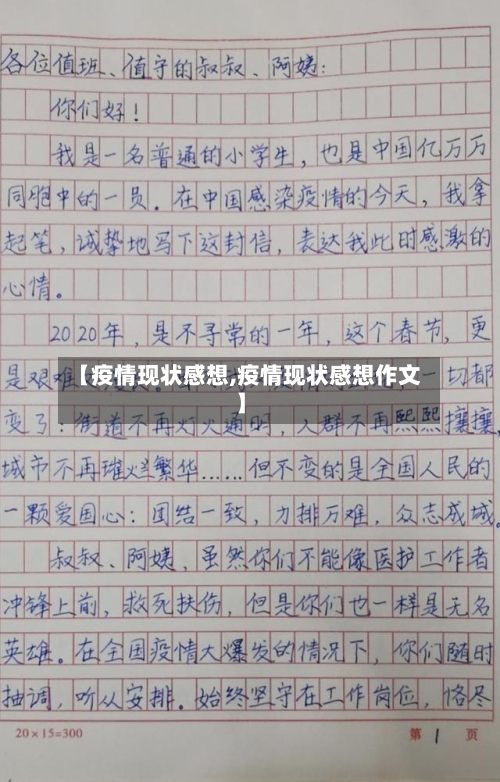 各位值班、值守的叔叔、阿姨:
你们好!
我是一名普通的小学生,也是中国亿万万
同胞中的一员。在中国感染疫情的今天,我拿
起笔,诚挚地写下这封信,表达我此时感激的
心情。
2020年,是不寻常的一年,这个春节,更
是艰难
一切都
【疫情现状感想,疫情现状感想作文
】
变了:街道不再灯火通明,人群不再熙熙攘攘,
城市不再璀烂繁华……但不变的是全国人民的
一颗爱国心:团结一致,力排万难,众志成城。
叔叔、阿姨,虽然你们不能像医护工作者
冲锋上前,救死扶伤,但是你们也一样是无名
英雄。在全国疫情大爆发的情况下,你们随时
抽调,听从安排。始终坚守在工作岗位,恪尽
20×15=300
第1页